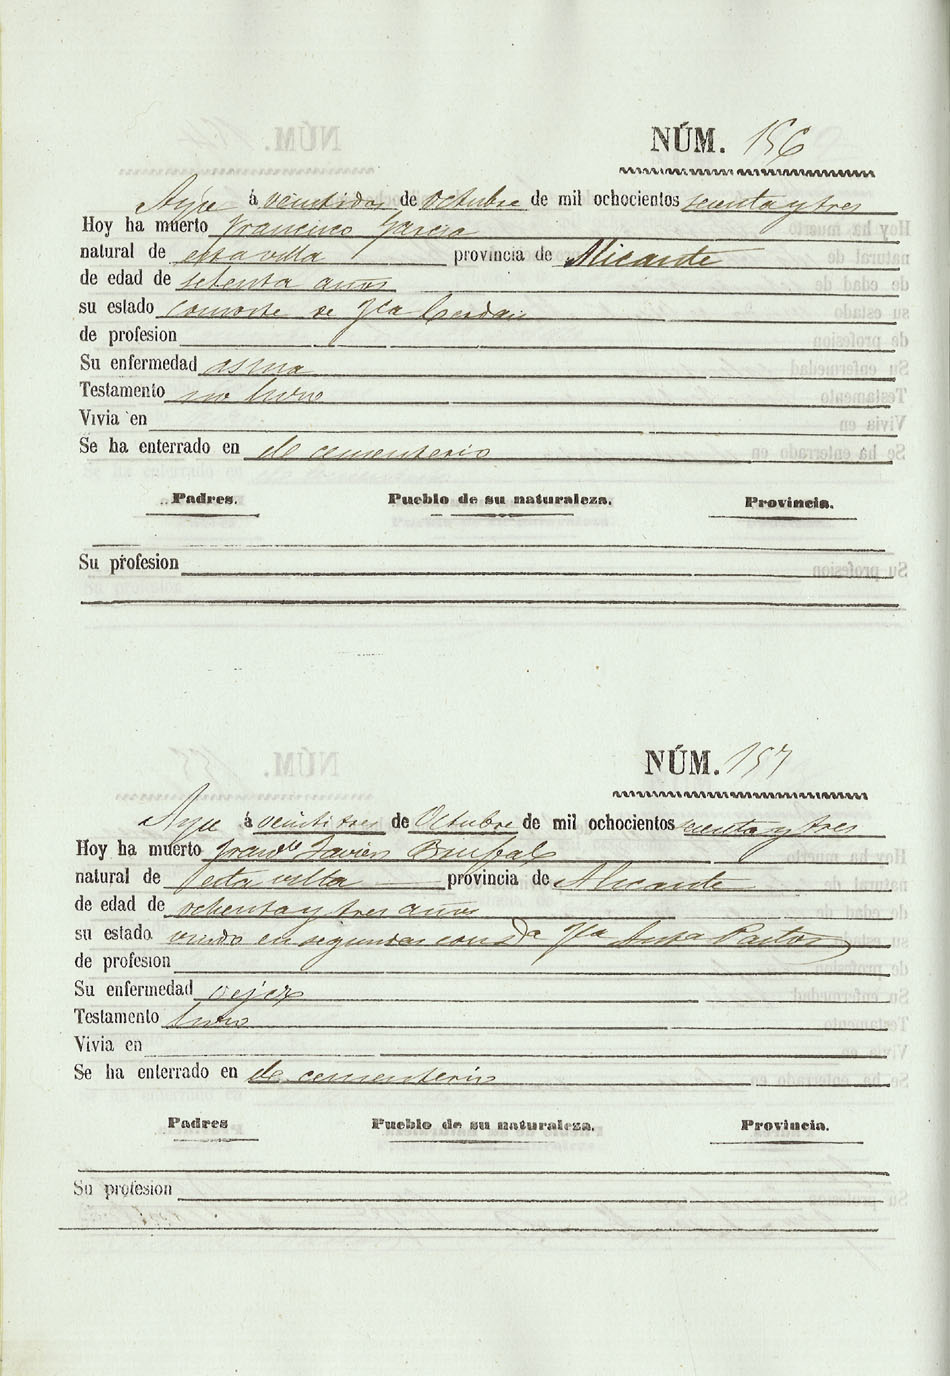 NÚM. 156
Aspe á veintidos de Octubre de mil ochocientos sesenta y tres
Hoy ha muerto Francisco Garcia
natural de esta villa provincia de Alicante
de edad de setenta años
su estado consorte de Fca Cerdan
de profesion
Su enfermedad asma
Testamento no hizo
Vivia en
Se ha enterrado en de cementerio
Padres. Pueblo de su naturaleza. Provincia.
Su profesion
NÚM. 157
Aspe á veintitres de Octubre de mil ochocientos sesenta y tres
Hoy ha muerto Javier
natural de esta villa provincia de Alicante
de edad de ochenta y tres años
su estado viudo en segundas con Da Fca Pastor
de profesion
Su enfermedad vejez
Testamento hizo
Vivia en
Se ha enterrado en de cementerio
Padres Pueblo de su naturaleza. Provincia.
Su profesion